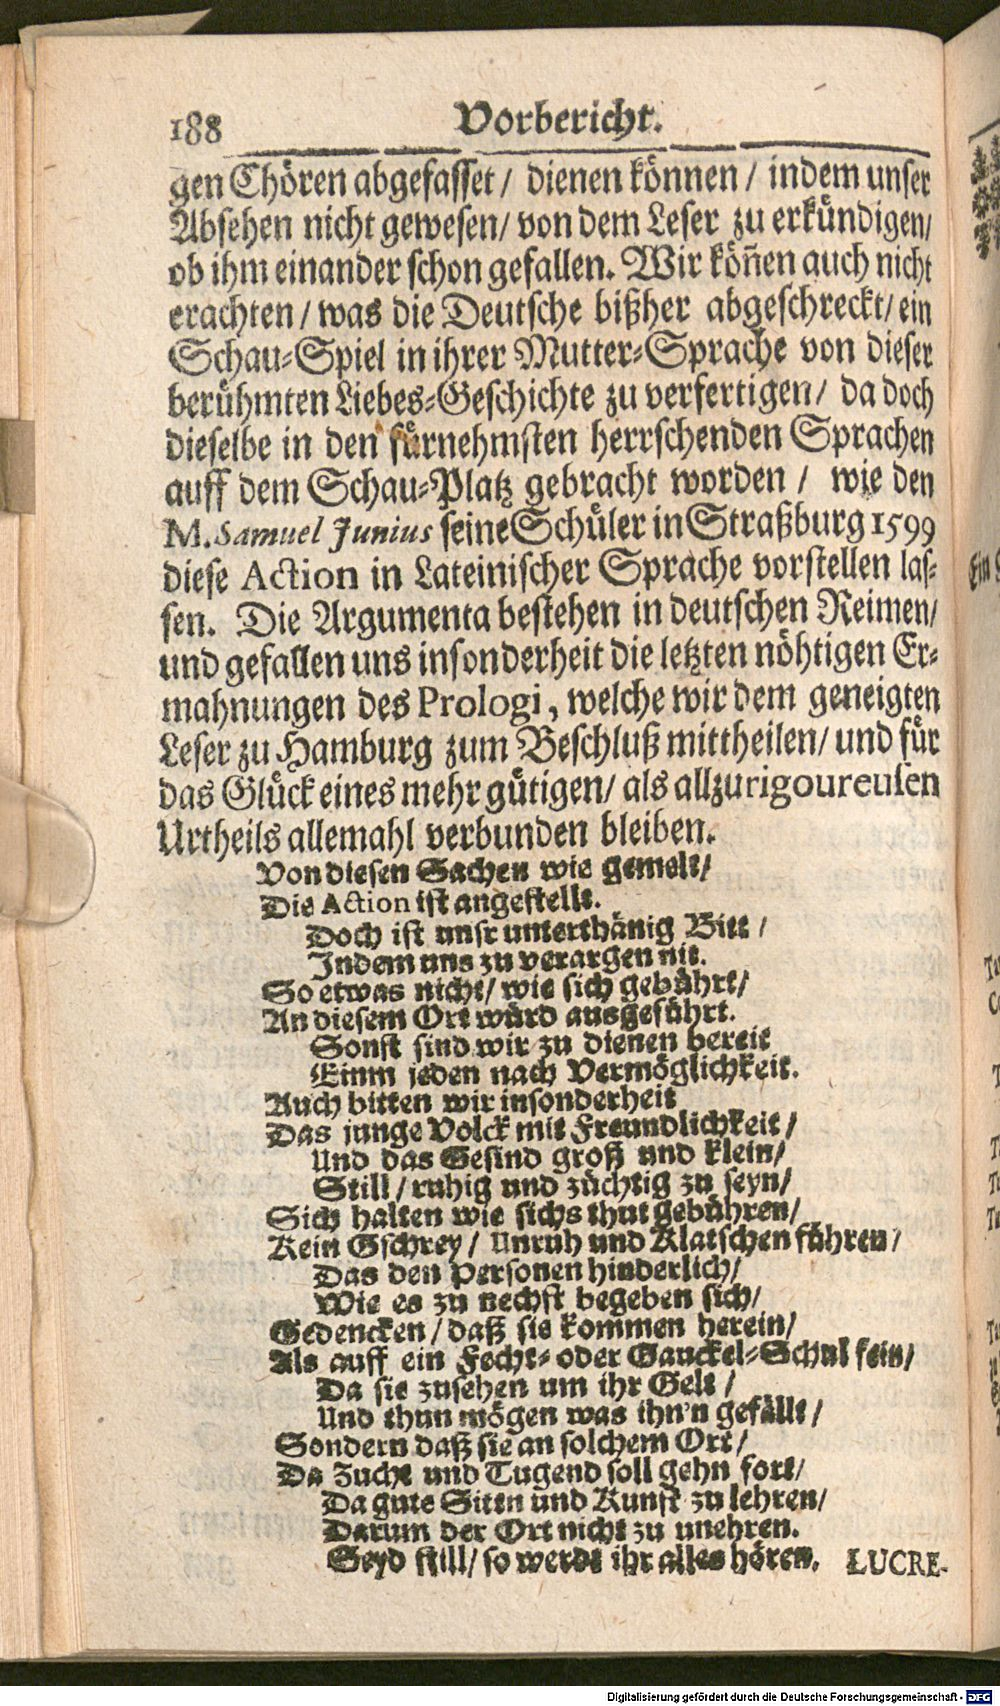 188 Vorbericht.
gen Chören abgefasset / dienen können / indem unser
Absehen nicht gewesen / von dem Leser zu erkündigen/
ob ihm einander schon gefallen. Wir köñen auch nicht
erachten / was die Deutsche bißher abgeschreckt / ein
Schau-Spiel in ihrer Mutter-Sprache von dieser
berühmten Liebes-Geschichte zu verfertigen / da doch
dieselbe in den fürnehmsten herrschenden Sprachen
auff dem Schau-Platz gebracht worden / wie den
M. Samuel Junius seine Schüler in Straßburg 1599
diese Action in Lateinischer Sprache vorstellen las-
sen. Die Argumenta bestehen in deutschen Reimen/
und gefallen uns insonderheit die letzten nöhtigen Er-
mahnungen des Prologi, welche wir dem geneigten
Leser zu Hamburg zum Beschluß mittheilen / und für
das Glück eines mehr gütigen / als allzurigoureusen
Urtheils allemahl verbunden bleiben.
Von diesen Sachen wie gemelt /
Die Action ist angestellt.
Doch ist unsr unterthänig Bitt /
Indem uns zu verargen nit.
So etwas nicht / wie sich gebührt /
An diesem Ort würd ausgeführt.
Sonst sind wir zu dienen bereit
Einm jeden nach Vermöglichkeit.
Auch bitten wir insonderheit
Das junge Volck mit Freundlichkeit /
Und das Gesind groß und klein /
Still / ruhig und züchtig zu seyn /
Sich halten wie sichs thut gebühren /
Kein Gschrey / Unruh und Klatschen führen /
Das den Personen hinderlich /
Wie es zu nechst begeben sich /
Gedencken / daß sie kommen herein /
Als auff ein Fecht- oder Gauckel-Schul fein /
Da sie zusehen um ihr Gelt /
Und thun mögen was ihn'n gefällt /
Sondern daß sie an solchem Ort /
Da Zucht und Tugend soll gehn fort /
Da gute Sittn und Kunst zu lehren /
Darum der Ort nicht zu unehren.
Seyd still / so werdt ihr alles hören. LUCRE-
Digitalisierung gefördert durch die Deutsche Forschungsgemeinschaft - DFG